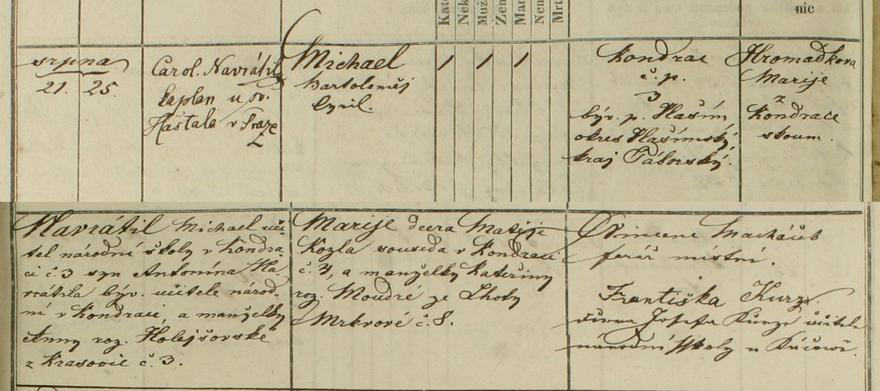 Kato
Nek
Muž
Žen
Man
Nem
Mrt
nic
srpna
21. 25.
Carol. Navrátil
kaplan u sv.
Haštala v Praze
Michael
Bartoloměj
Cyril.
/ / /
Kondrac
č. p.
3
býv. p. Vlašim
okres Vlašimský,
kraj Táborský.
Hromadkova
Marije
z
Kondrace
zkoum.
Navrátil Michael uči-
tel národní školy v Kondra-
ci č. 3 syn Antonína Na-
vrátila býv. učitele národ-
ní v Kondraci, a manželky
Anny roz. Holejšovské
z Krasovic č. 3.
Marije dcera Matěje
Kozla souseda v Kondraci
č. 4, a manželky Kateřiny
roz. Moudré ze Lhoty
Mrkvové č. 8.
Vincenc Macháček
farář místní.
Františka Kurz.
Josefa Kurze učitele
národní školy v